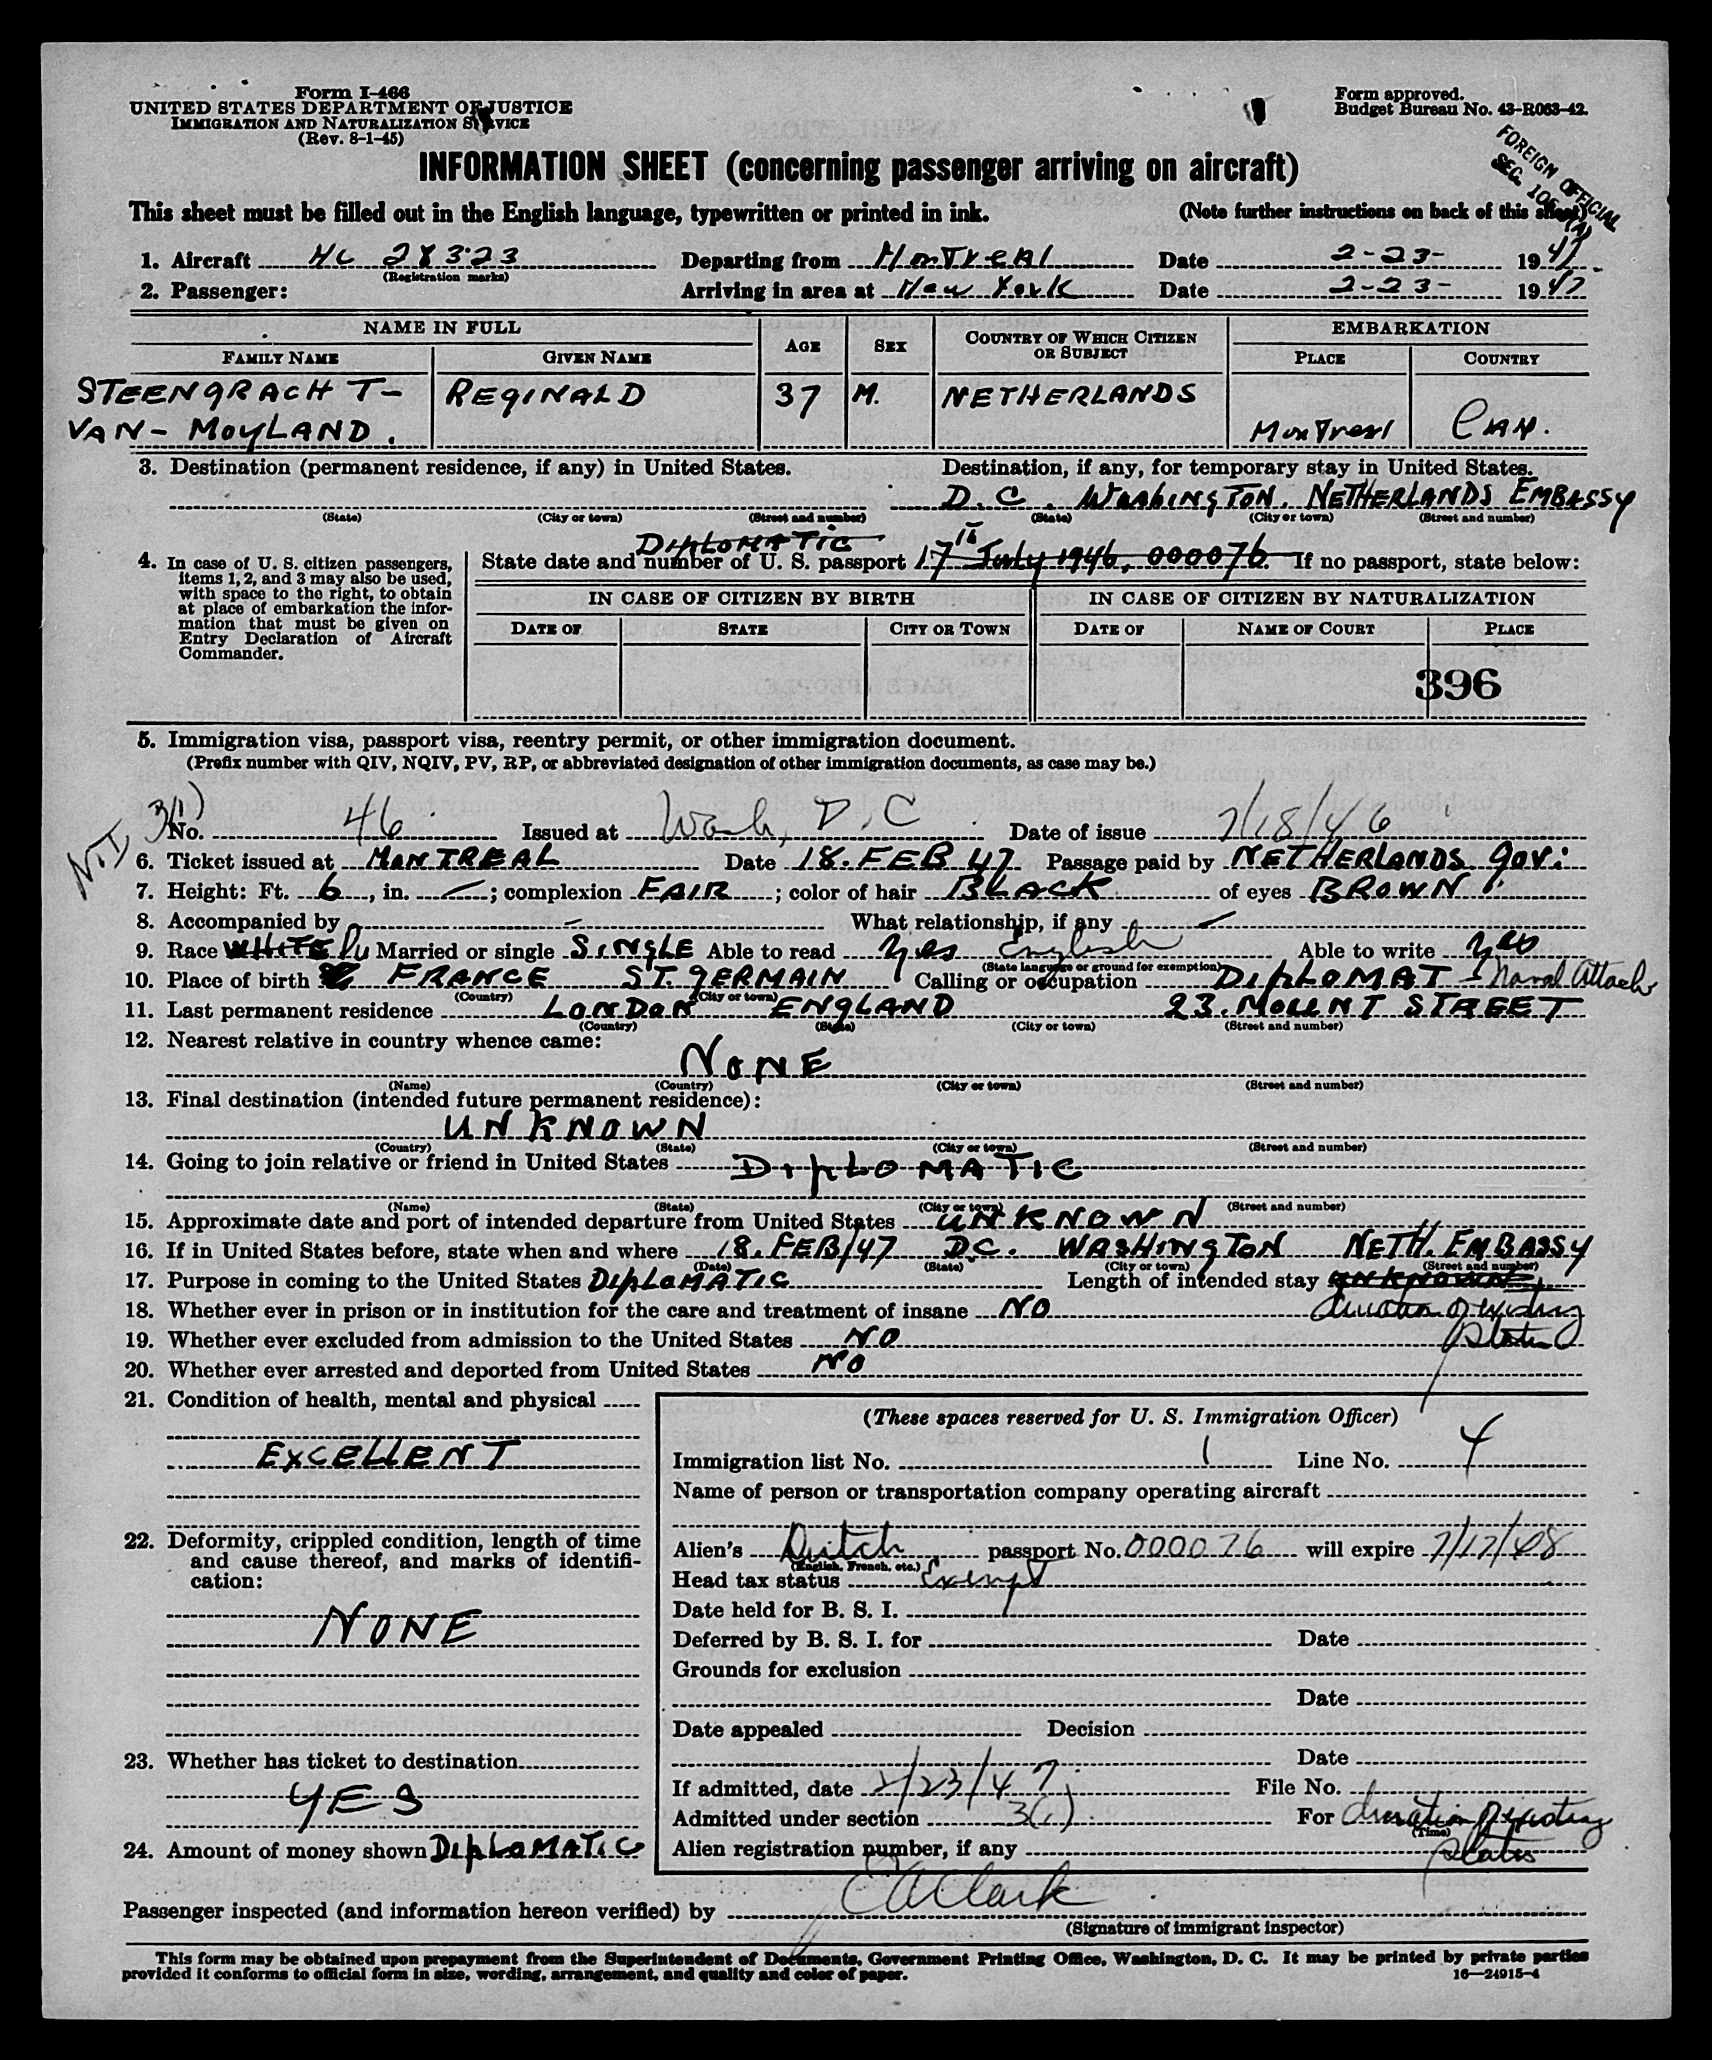 Form I-466
UNITED STATES DEPARTMENT OF JUSTICE
IMMIGRATION AND NATURALIZATION SERVICE
(Rev. 8-1-45)
Form approved.
Budget Bureau No. 43-R063-42.
FOREIGN OFFICIAL
SEC.
INFORMATION SHEET (concerning passenger arriving on aircraft)
This sheet must be filled out in the English language, typewritten or printed in ink. (Note further instructions on back of this sheet)
1. Aircraft NC 28323 Departing from Montreal Date 2-23- 1947.
(Registration marks)
2. Passenger: Arriving in area at New York Date 2-23- 1947
NAME IN FULL AGE SEX COUNTRY OF WHICH CITIZEN OR SUBJECT EMBARKATION
FAMILY NAME GIVEN NAME PLACE COUNTRY
STEENGRACHT- REGINALD 37 M. NETHERLANDS
VAN-MOYLAND. Montreal CAN.
3. Destination (permanent residence, if any) in United States. Destination, if any, for temporary stay in United States.
D.C. WASHINGTON. NETHERLANDS EMBASSY
(State) (City or town) (Street and number) (State) (City or town) (Street and number)
DIPLOMATIC
4. In case of U. S. citizen passengers, items 1, 2, and 3 may also be used, with space to the right, to obtain at place of embarkation the information that must be given on Entry Declaration of Aircraft Commander.
State date and number of U. S. passport 17th July 1946, 000076. If no passport, state below:
IN CASE OF CITIZEN BY BIRTH IN CASE OF CITIZEN BY NATURALIZATION
DATE OF STATE CITY OR TOWN DATE OF NAME OF COURT PLACE
396
5. Immigration visa, passport visa, reentry permit, or other immigration document.
(Prefix number with QIV, NQIV, PV, RP, or abbreviated designation of other immigration documents, as case may be.)
3(1)
No. 46 Issued at Wash, D.C Date of issue 7/18/46
6. Ticket issued at MONTREAL Date 18.FEB 47 Passage paid by NETHERLANDS GOV:
7. Height: Ft. 6, in. —; complexion FAIR; color of hair BLACK of eyes BROWN.
8. Accompanied by — What relationship, if any —
9. Race WHITE Du Married or single SINGLE Able to read Yes English Able to write yes
(State language or ground for exemption)
10. Place of birth FRANCE ST. GERMAIN Calling or occupation DIPLOMAT - Naval Attache
(Country) (City or town)
11. Last permanent residence LONDON ENGLAND 23. MOUNT STREET
(Country) (State) (City or town) (Street and number)
12. Nearest relative in country whence came:
NONE
(Name) (Country) (City or town) (Street and number)
13. Final destination (intended future permanent residence):
UNKNOWN
(Country) (State) (City or town) (Street and number)
14. Going to join relative or friend in United States DIPLOMATIC
(Name) (State) (City or town) (Street and number)
15. Approximate date and port of intended departure from United States UNKNOWN
16. If in United States before, state when and where 18.FEB/47 D.C. WASHINGTON NETH. EMBASSY
(Date) (State) (City or town) (Street and number)
17. Purpose in coming to the United States DIPLOMATIC Length of intended stay UNKNOWN
18. Whether ever in prison or in institution for the care and treatment of insane NO duration of existing
19. Whether ever excluded from admission to the United States NO status
20. Whether ever arrested and deported from United States NO
21. Condition of health, mental and physical
EXCELLENT
22. Deformity, crippled condition, length of time and cause thereof, and marks of identification:
NONE
23. Whether has ticket to destination
YES
24. Amount of money shown DIPLOMATIC
(These spaces reserved for U. S. Immigration Officer)
Immigration list No. 1 Line No. 4
Name of person or transportation company operating aircraft
Alien's Dutch passport No. 000076 will expire 7/17/48
(English, French, etc.)
Head tax status Exempt
Date held for B. S. I.
Deferred by B. S. I. for Date
Grounds for exclusion
Date
Date appealed Decision
Date
If admitted, date 2/23/47. File No.
Admitted under section 3(1). For duration of existing
(Time)
Alien registration number, if any status
Passenger inspected (and information hereon verified) by CA Clark
(Signature of immigrant inspector)
This form may be obtained upon prepayment from the Superintendent of Documents, Government Printing Office, Washington, D. C. It may be printed by private parties
provided it conforms to official form in size, wording, arrangement, and quality and color of paper. 16—24915-4